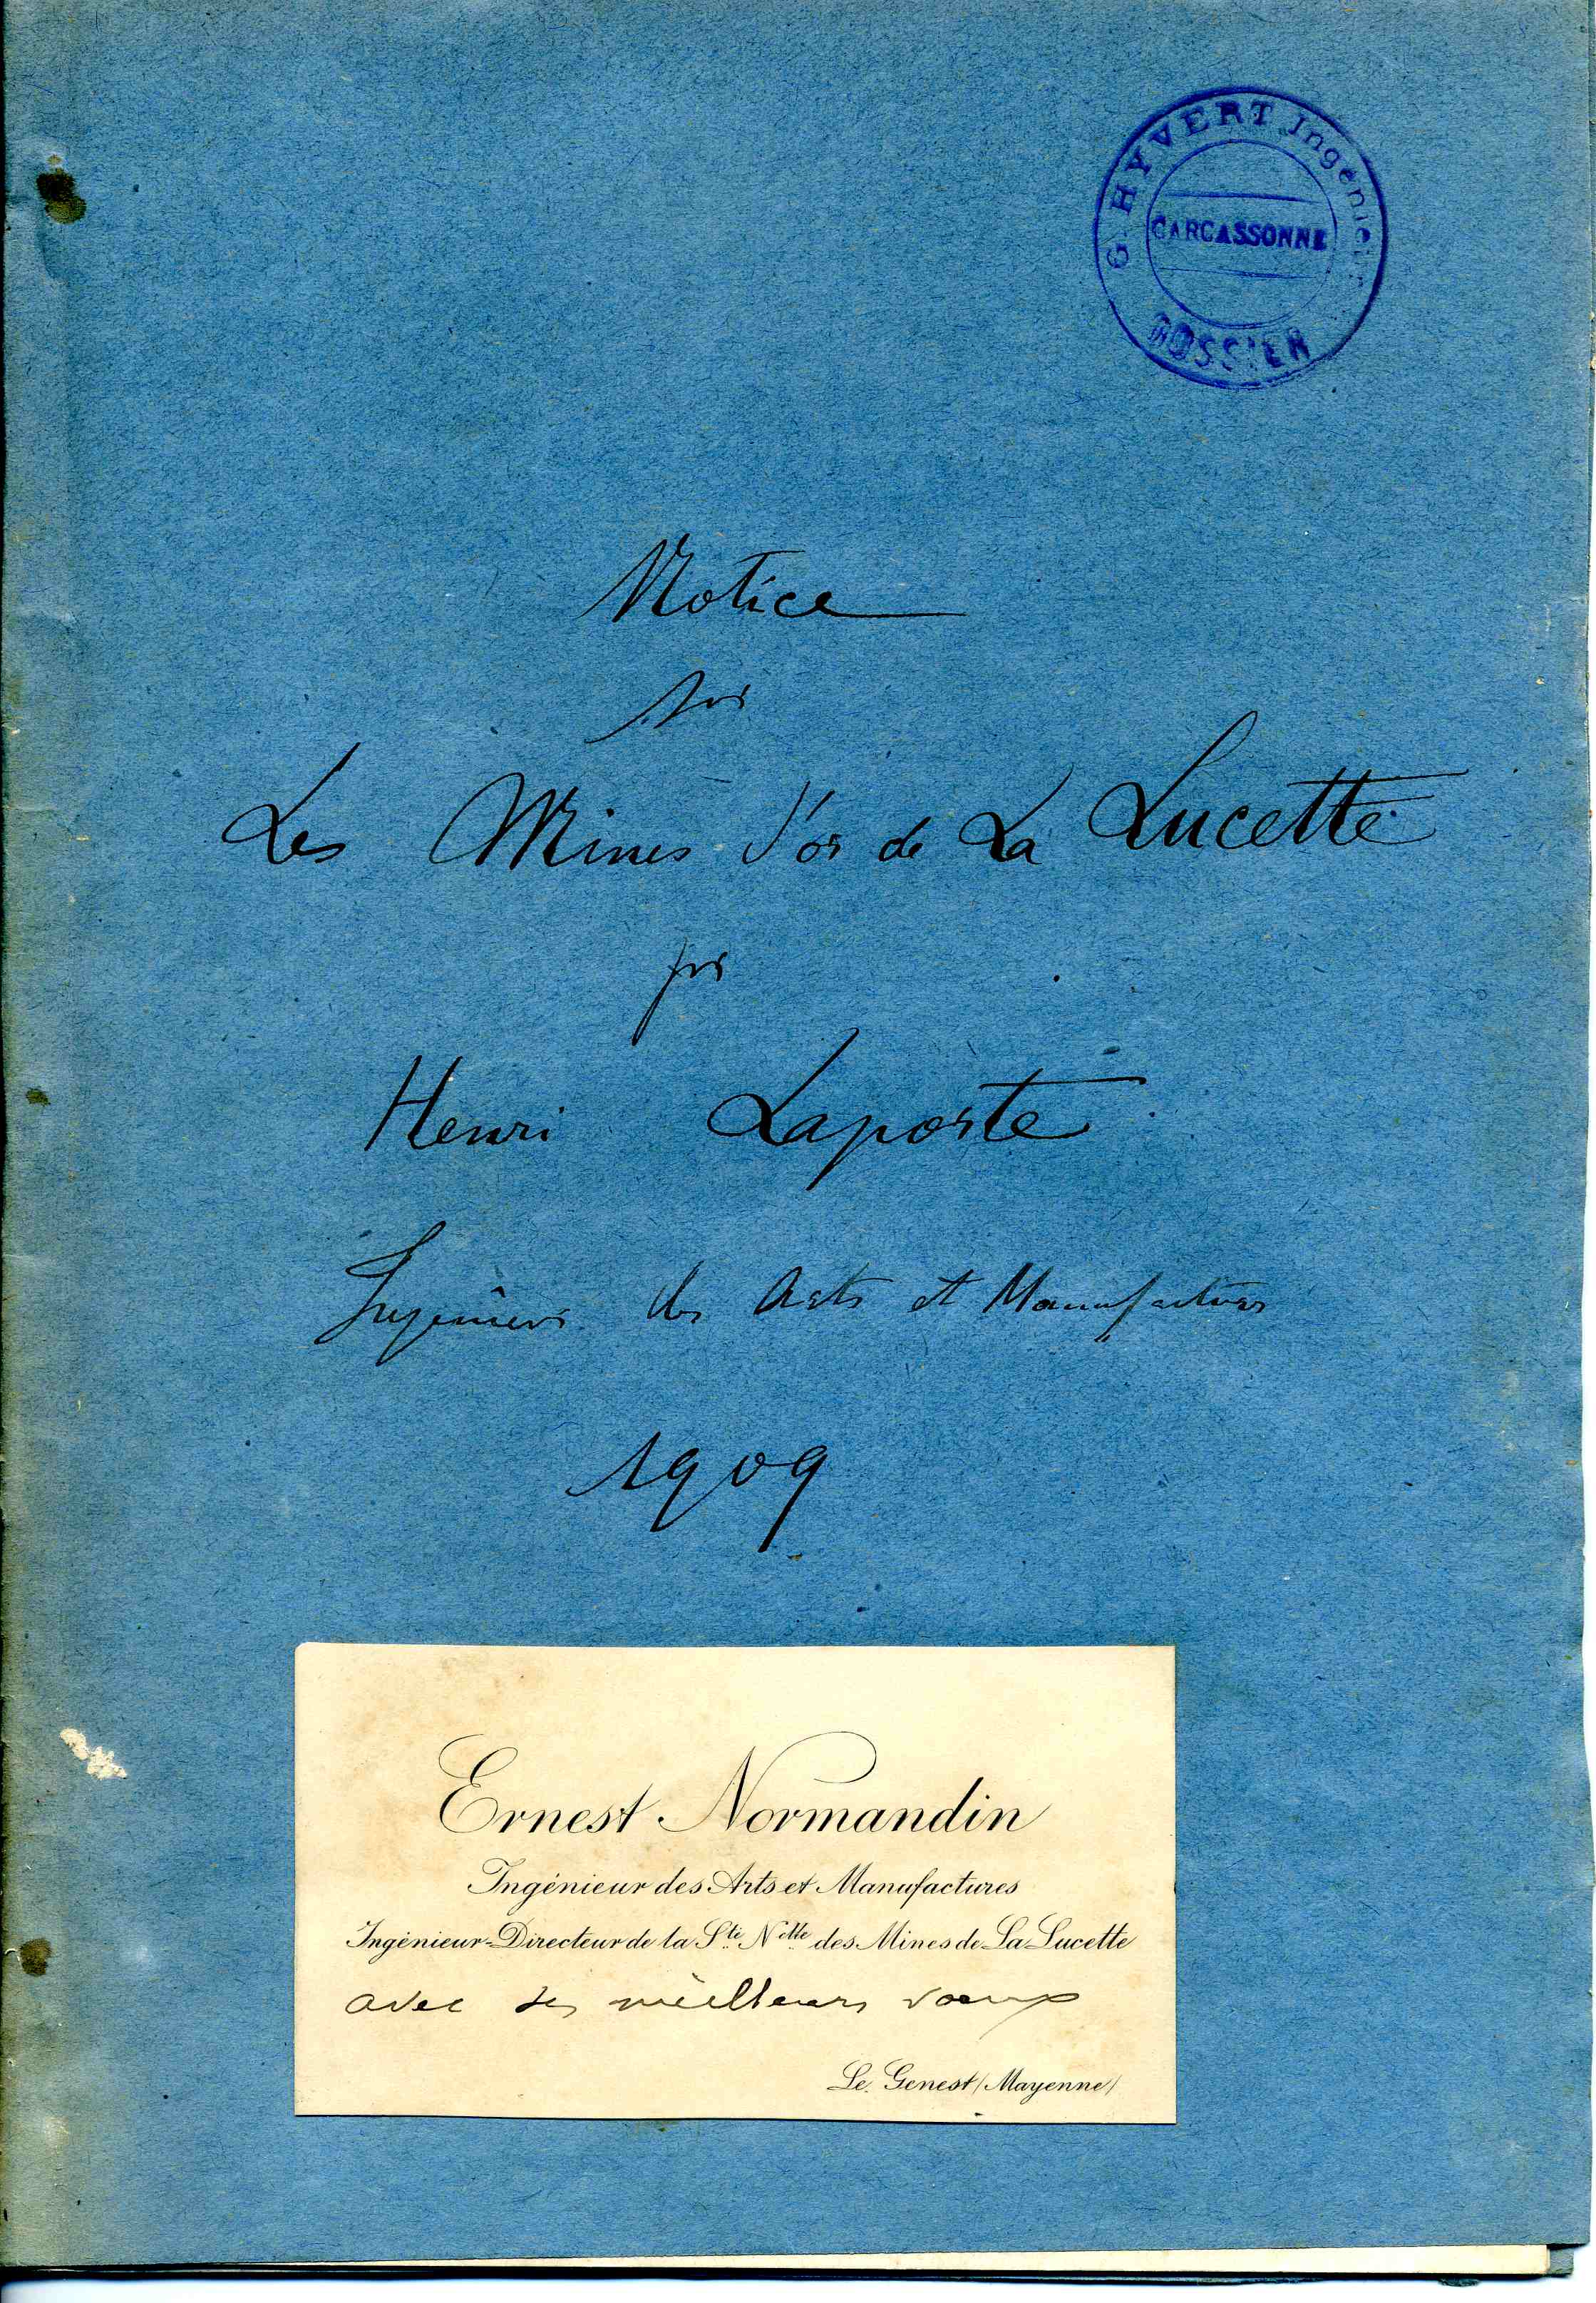 G. HYVERT Ingénieur
CARCASSONNE
DOSSIER
Notice
sur
Les Mines d'or de La Lucette
par
Henri Laporte
Ingénieur des Arts et Manufactures
1909
Ernest Normandin
Ingénieur des Arts et Manufactures
Ingénieur-Directeur de la Sté Nelle des Mines de La Lucette
avec ses meilleurs voeux
Le Genest (Mayenne)